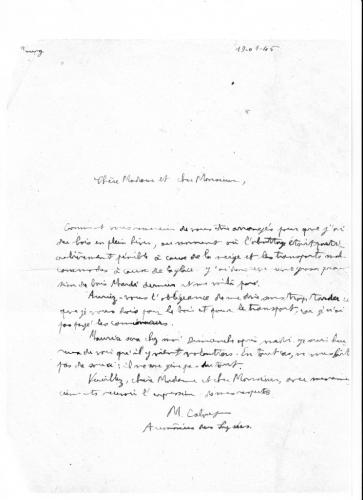 19-01-45
Chère Madame et cher Monsieur,
Comment vous remercier de vous être arrangés pour que j'ai
du bois en plein hiver, au moment où l'abattage était parti-
culièrement pénible à cause de la neige et les transports mal-
commodes à cause de la glace
de bois Mardi dernier et me voilà paré.
Auriez-vous l'obligeance de me dire sans trop tarder ce
que je vous dois pour le bois et pour le transport, car je n'ai
pas payé les
Maurice sera chez moi Dimanche après midi
de voir qu'il y vient volontiers. En tout cas, ne vous faites
pas de souci: il ne me gêne pas du tout.
Veuillez, chère Madame et cher Monsieur, avec mes remer-
ciements recevoir l'expression de mes respects
M.
Aumônier des Lycées.